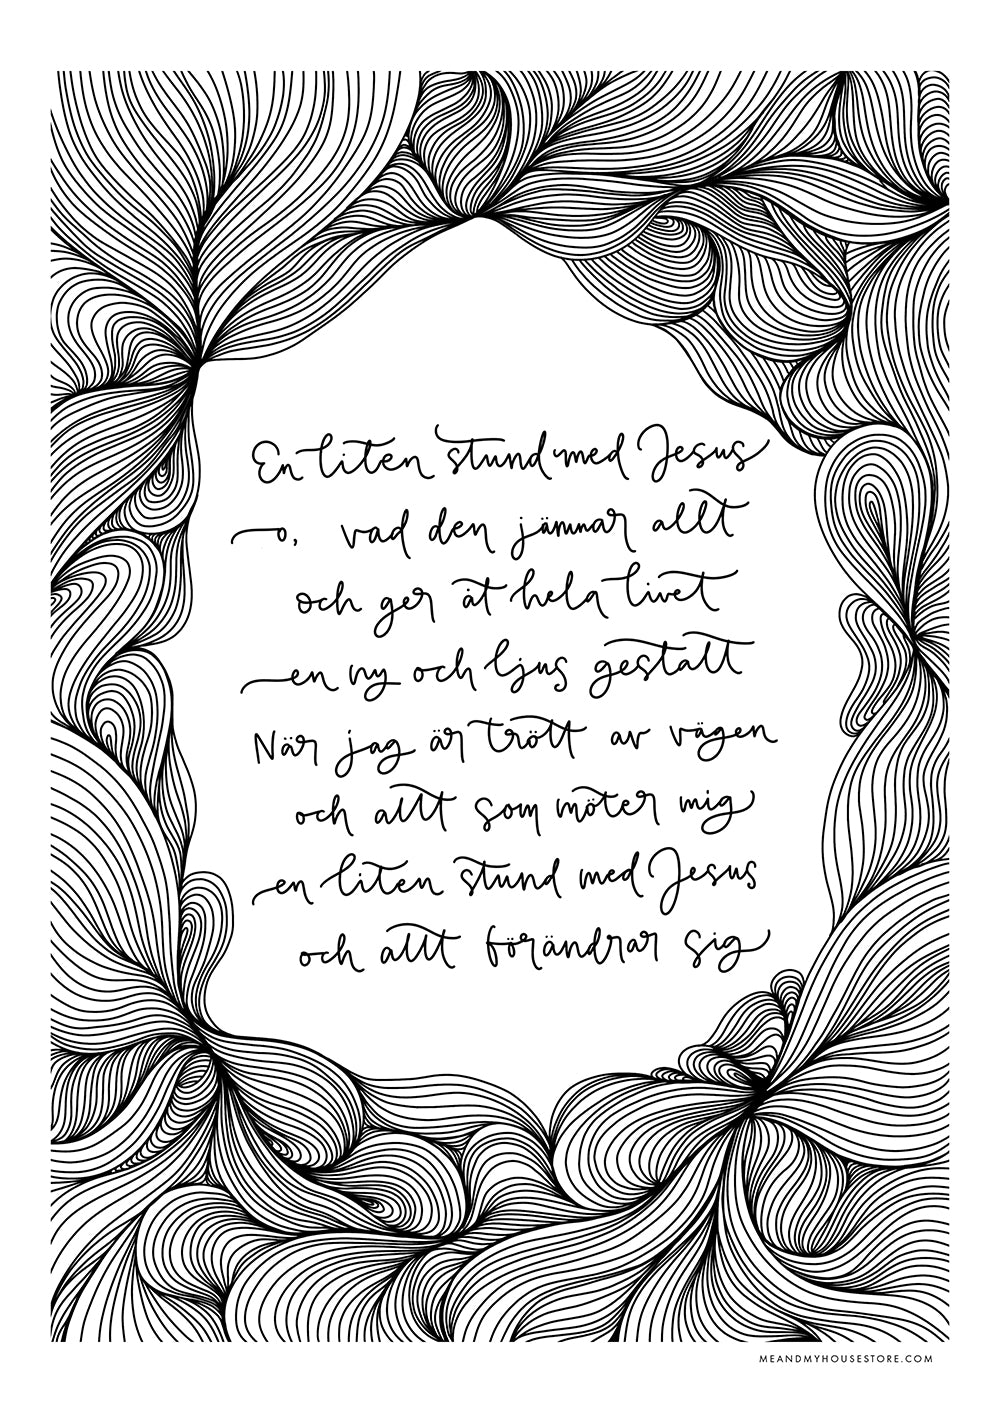 En liten stund med Jesus
o, vad den jämnar allt
och ger åt hela livet
en ny och ljus gestalt
När jag är trött av vägen
och allt som möter mig
en liten stund med Jesus
och allt förändrar sig
MEANDMYHOUSESTORE.COM